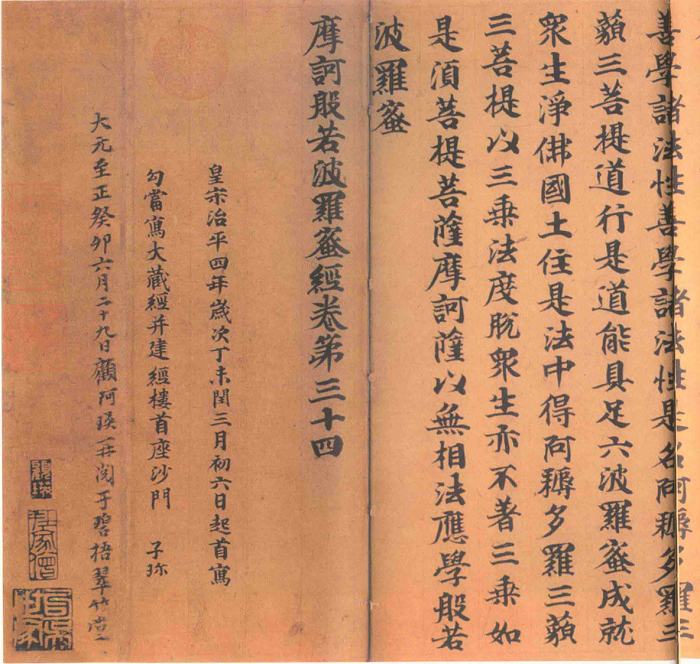 善學諸法性善學諸法性是名阿耨多羅三
藐三菩提道行是道能具足六波羅蜜成就
眾生淨佛國土住是法中得阿耨多羅三藐
三菩提以三乗法度脫眾生亦不著三乗如
是須菩提菩薩摩訶薩以無相法應學般若
波羅蜜
摩訶般若波羅蜜經卷第三十四
皇宋治平四年歲次丁未閏三月初六日起首寫
勾當寫大藏經并建經樓首座沙門 子珍
大元至正癸卯六月二十九日顧阿瑛一莽閱于碧梧翠竹堂